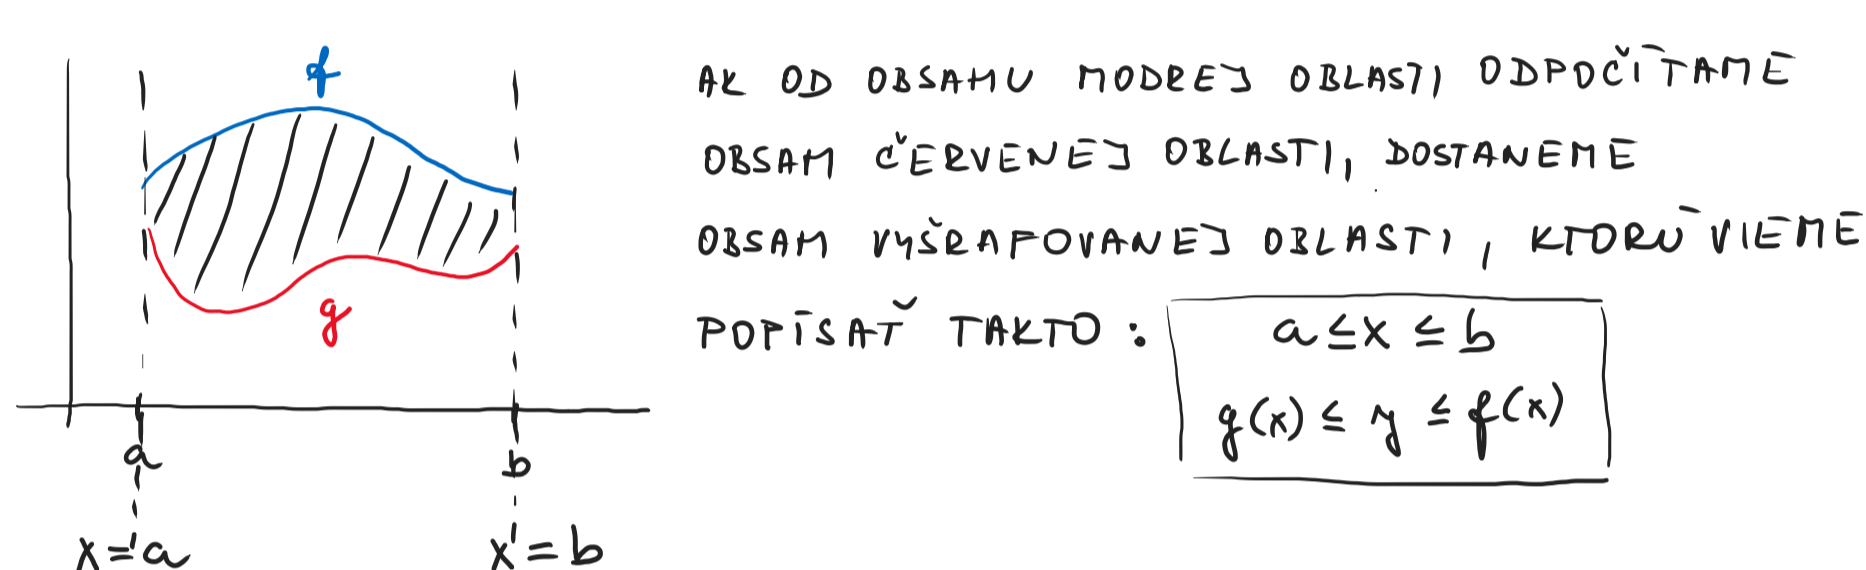 f
g
a
b
x = a
x = b
AK OD OBSAHU MODREJ OBLASTI ODPOČÍTAME
OBSAH ČERVENEJ OBLASTI, DOSTANEME
OBSAH VYŠRAFOVANEJ OBLASTI, KTORÚ VIEME
POPÍSAŤ TAKTO:
a ≤ x ≤ b
g(x) ≤ y ≤ f(x)